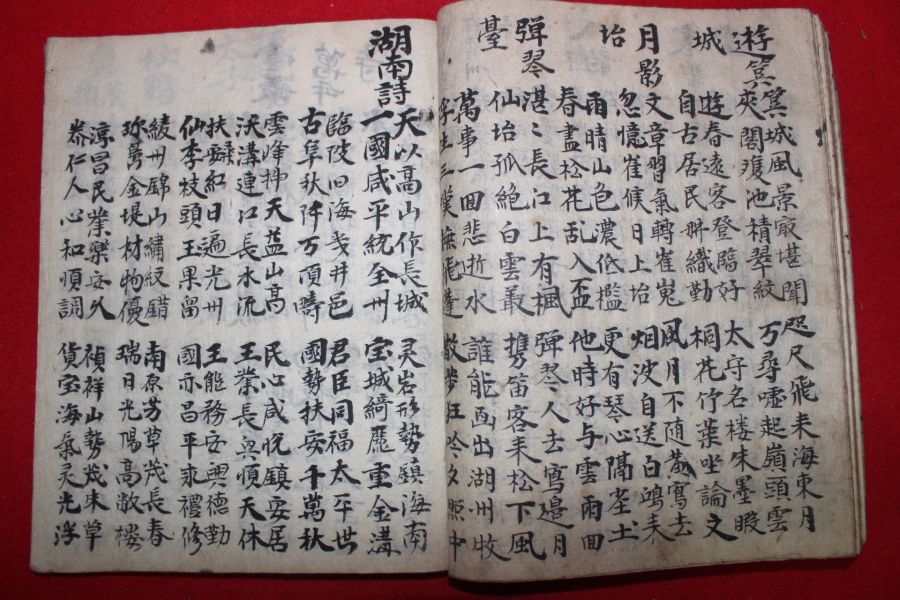 遊箕城
箕城風景最堪聞 咫尺飛来海東月
夾閣濩池積翠紋 万尋嘘起嶺頭雲
遊春遠客登臨好 太守名楼朱墨暇
自古居民耕織勤 桐花竹葉坐論文
月影坮
文章習氣轉崔嵬 風月不随黄寫去
忽憶崔候日上坮 烟波自送白鴎来
雨晴山色濃低檻 更有琴心隔座士
春盡松花乱入盃 他時好与雲雨回
弾琴臺
湛〻長江上有楓 弾琴人去寫邉月
仙坮孤絶白雲叢 携笛客来松下風
萬事一回悲逝水 誰能画出湖州牧
浮生三嘆撫飛蓬 散步狂吟夕照中
湖南詩
天以高山作長城 灵岩形勢鎮海南
一國咸平統全州 宝城綺麗重金溝
臨陂四海幾井邑 君臣同福太平世
古阜秋阡万頃疇 國勢扶安千萬秋
雲峰揷天益山高 民心咸悅鎮安居
沃溝連口長水流 王業長興順天休
扶桑紅日遍光州 王能務安興德勤
仙李枝頭玉果留 國亦昌平求禮修
綾州錦山繡紋錯 南原芳草茂長春
珎萬金堤材物優 瑞日光陽高敞楼
淳昌民業樂安久 禎祥山勢茂朱草
泰仁人心和順調 貨宝海氣灵光浮